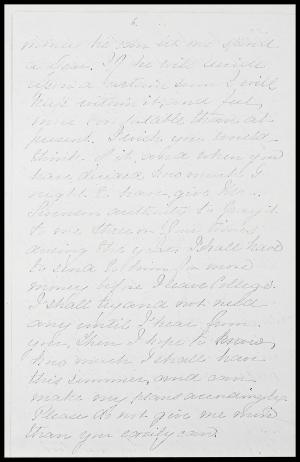 6
money he can let me spend
a year. If he will decide
upon a certain sum I will
keep within it, and feel
more comfortable than at
present. I wish you would
think of it, and when you
have decided how much I
ought to have, give Mr.
authority to pay it
to me three or four times
during the year. I shall have
to send to him for more
money before I leave College.
I shall try and not need
any until I hear from
you, then I hope to know
how much I shall have
this summer, and can
make my plans accordingly.
Please do not give me more
than you easily can.